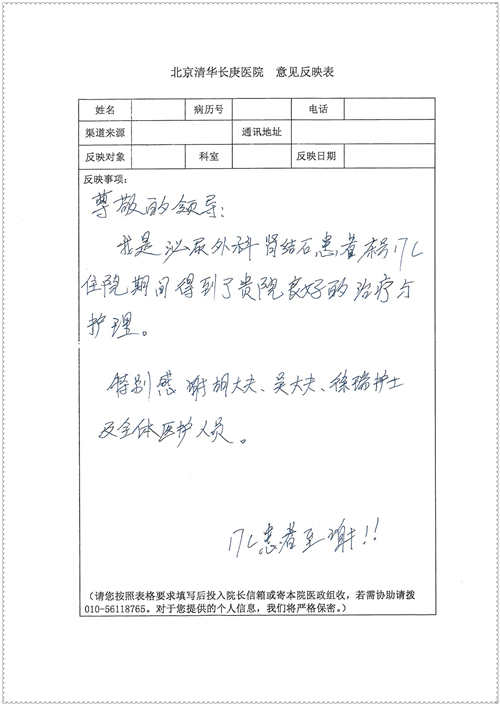 北京清华长庚医院 意见反映表
姓名 病历号 电话
渠道来源 通讯地址
反映对象 科室 反映日期
反映事项：
尊敬的领导：
我是泌尿外科肾结石患者床号17C
住院期间得到了贵院良好的治疗与
护理。
特别感谢胡大夫、吴大夫、徐瑞护士
及全体医护人员。
17C患者至谢!!
(请您按照表格要求填写后投入院长信箱或寄本院医政组收，若需协助请拨
010-56118765。对于您提供的个人信息，我们将严格保密。)